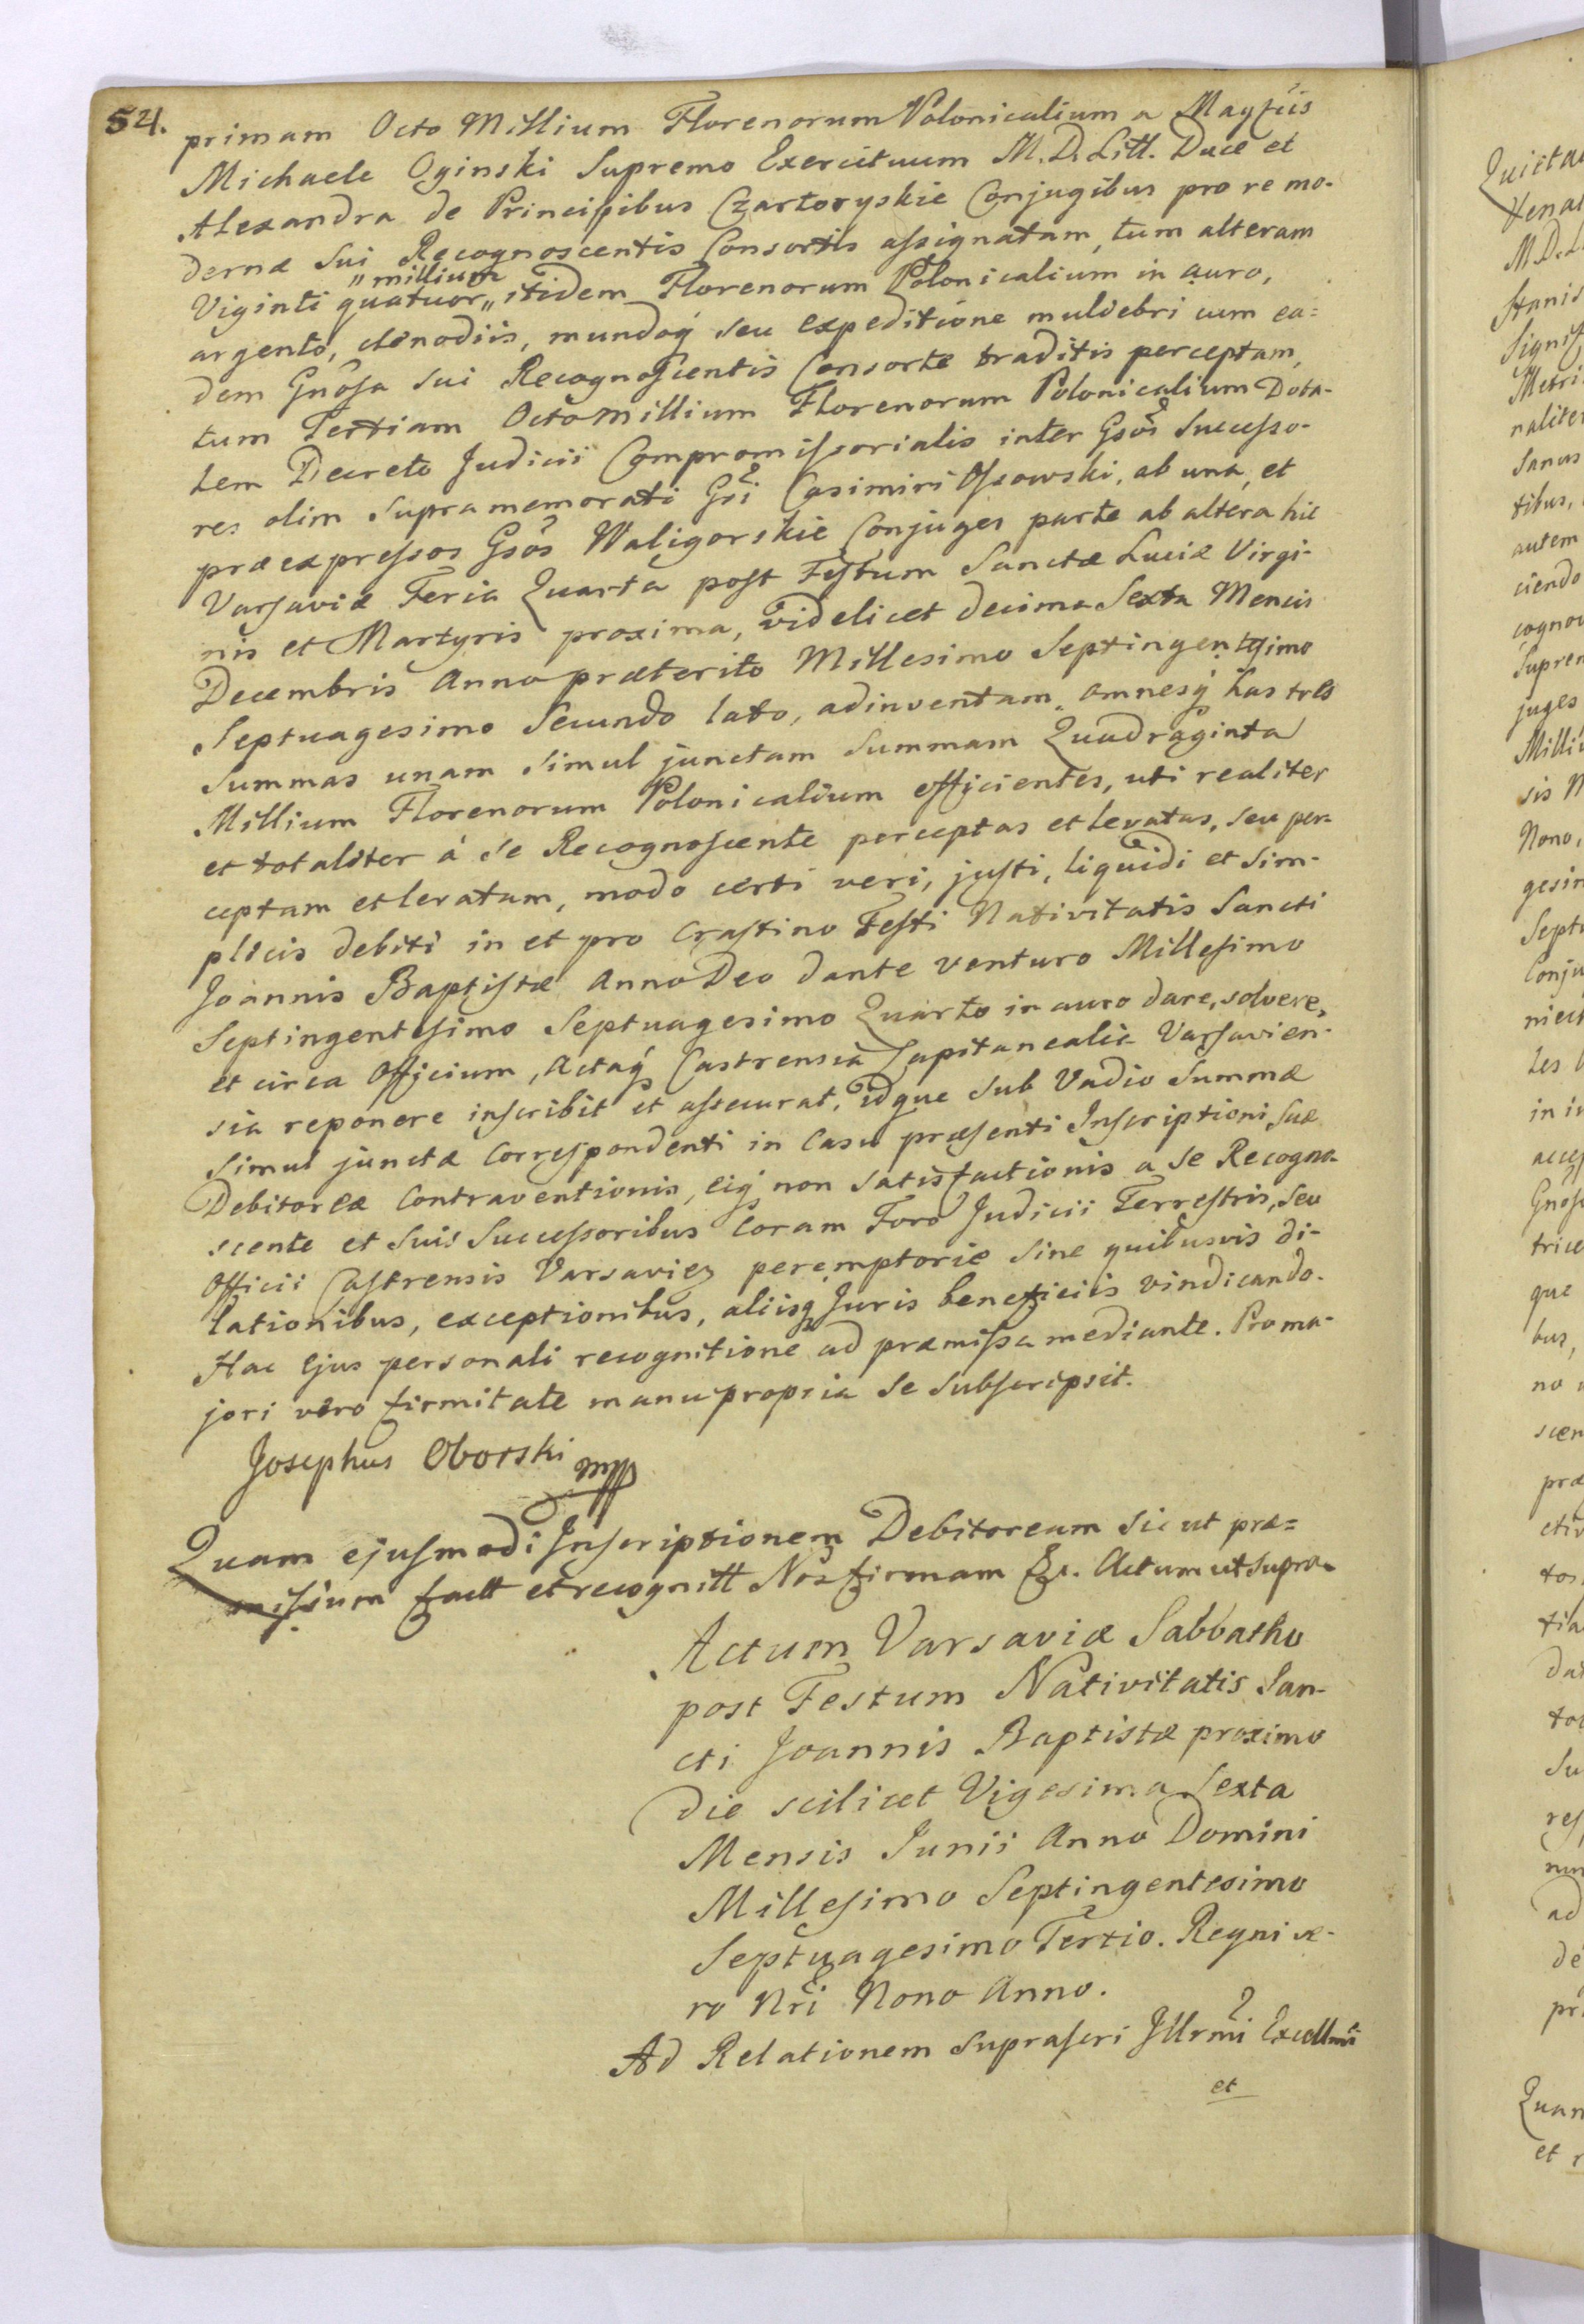 54.
primam Octo Millium Florenorum Polonicalium a Magfcis
Michaele Oginski Supremo Exercituum M. D. Litt. Duce et
Alexandra de Principibus Czartoryskie Conjugibus pro re mo-
dernæ sui Recognoscentis Consortis assignatam, tum alteram
„millium
Viginti quatuor„ itidem Florenorum Polonicalium in auro,
argento, clenodiis, mundoq́ seu expeditione muliebri cum ea=
dem Gnôsa sui Recognoscentis Consorte traditis perceptam,
tum Tertiam Octo millium Florenorum Polonicalium Dota-
lem Decreto Judicii Compromissorialis inter Gsôs Successo-
res olim supramemorati Gsi Casimiri Ossowski, ab una, et
præexpressos Gsôs Waligorskie Conjuges parte ab altera hic
Varsaviæ Feria Quarta post Festum Sanctæ Luciæ Virgi-
nis et Martyris proxima, videlicet decima Sexta Mensis
Decembris Anno præterito Millesimo Septingentesimo
Septuagesimo Secundo lato, adinventam. omnesq́ has tres
summas unam simul junctam Summam Quadraginta
Millium Florenorum Polonicalium efficientes, uti realiter
et totaliter á se Recognoscente perceptas et levatas, seu per-
ceptam et levatam, modo certi veri, justi, liquidi et sim-
plicis debiti in et pro Crastino Festi Nativitatis Sancti
Joannis Baptistæ Anno Deo dante venturo Millesimo
Septingentesimo Septuagesimo Quarto in auro dare, solvere,
et circa Officium, Actaq́ Castrensia Capitanealia Varsavien-
sia reponere inscribit et assecurat, idque sub Vadio Summæ
simul junctæ Correspondenti in Casu præsenti Inscriptioni suæ
Debitoreæ Contraventionis, eiq́ non satisfactionis a se Recogno-
scente et suis Successoribus Coram Foro Judicii Terrestris, seu
Officii Castrensis Varsavien peremptorie sine quibusvis di-
lationibus, exceptionibus, aliisq́ Juris beneficiis vindicando.
Hac ejus personali recognitione ad præmissa mediante. Pro ma-
jori vero firmitate manu propria se subscripsit.
Josephus Oborski mpp
Quam ejusmodi Inscriptionem Debitoream sicut præ=
missium factt et recognitt Nos firmam &c. Actum ut supra.
Actum Varsaviæ Sabbatho
post Festum Nativitatis San-
cti Joannis Baptistæ proximo
die scilicet Vigesima Sexta
Mensis Junii Anno Domini
Millesimo Septingentesimo
Septuagesimo Tertio. Regni ve-
ro Nri Nono Anno.
Ad Relationem suprascri Jllrmi Excellmi
et